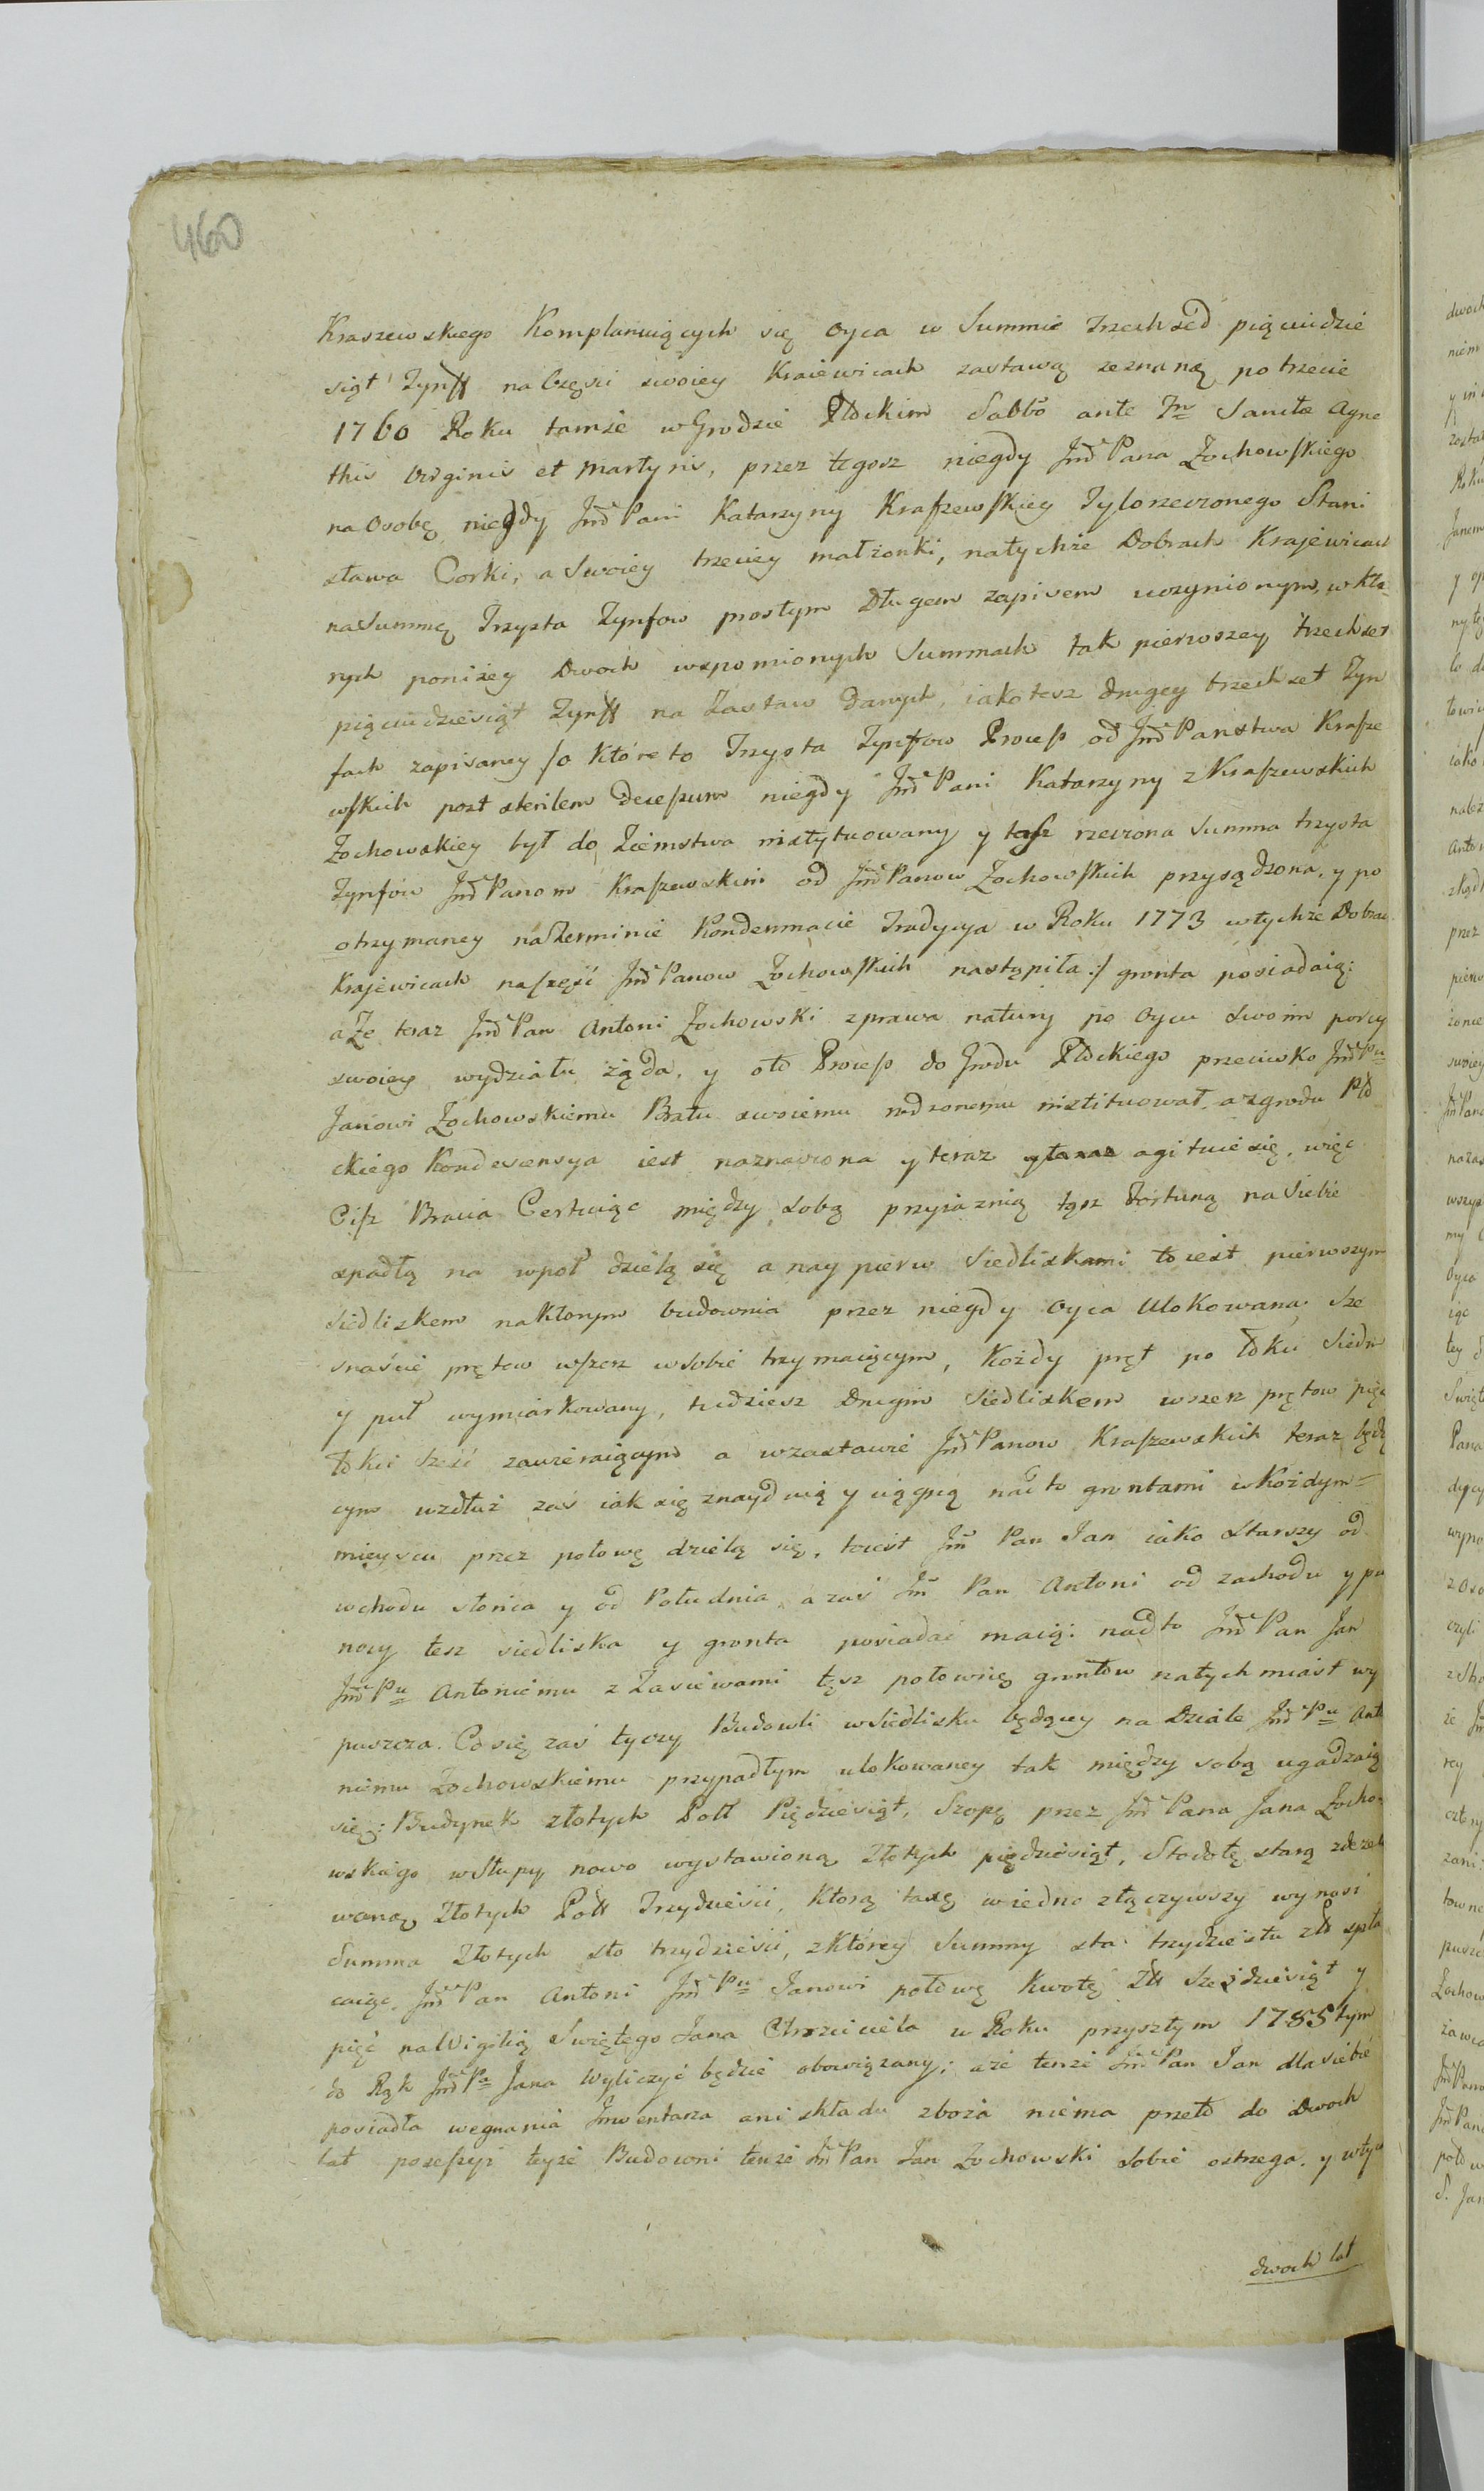 460
Kraszewskiego Komplanuiących się Oyca w Summie Trzechset pięciudzie
siąt Tynff na Częsci swoiey Kraiewicach zastawą zeznaną, po trzecie
1760 Roku tamże w Grodzie Płockim Sabbo ante Fm Sanctæ Agne
this Virginis et Martyris, przez tegosz niegdy Jmci Pana Zochowskiego
na Osobę niegdy Jmci Pani Katarzyny Kraszewskiey Tylorzeczonego Stani
sława Corki, a Swoiey trzeciey małżonki, na tychże Dobrach Krajewicach
na Summę Trzysta Tynfow prostym Długem zapisem uczynionym, w Któ-
rych poniżey Dwoch wspomionych Summach tak pierwszey trzechset
pięciudziesiąt Tynff na Zastaw danych, iako tesz drugiey trzechset Tyn
fach zapisaney /o które to Trzysta Tynfow Process od Jmci Panstwa Krasze
wskich post sterilem decessum niegdy Jmci Pani Katarzyny z Kraszewskich
Zochowskiey był do Ziemstwa instytuowany y tasz rzeczona Summa trzysta
Tynfow Jmci Panom Kraszewskim od Jmci Panow Zochowskich przysądzona, y po
otrzymaney na Terminie Kondemnacie Tradycya w Roku 1773 w tychże Dobrac
Krajewicach na część Jmci Panow Zochowskich nastąpiła:/ gronta posiadaią:
aże teraz Jmci Pan Antoni Zochowski z prawa natury po Oycu swoim porcyi
swoiey wydziału żąda, y oto Process do Grodu Płockiego przeciwko Jmci Pu
Janowi Zochowskiemu Bratu swoiemu rodzonemu instituował, a z grodu Pło
ckiego Kondescensya iest naznaczona y teraz agituie się, więc
Cisz Bracia Certuiąc między sobą przyiaznią tęsz Fortunę na Siebie
spadłą na wpoł dzielą się a nay pierw Siedliskami to iest pierwszym
Siedliskem na ktorym budownia przez niegdy Oyca Ulokowana Sze
snaście prętow wszerz w sobie trzymaiącym, Kożdy pręt po łokci Siedm
y puł wymiarkowany, tudziesz Drugim Siedliskem wszerz prętow pięc
łokci sześć zawieraiącym a w zastawie Jmci Panow Kraszewskich teraz będą
cym wzdłuż zaś iak się znayduią y ciągną nad to grontami w Kożdym=
mieyscu przez połowę dzielą się, to iest Jm Pan Jan iako Starszy od
wschodu słońca y od Południa, a zaś Jm Pan Antoni od zachodu y pu
nocy tesz siedliska y gronta posiadać maią: nadto Jmci Pan Jan
Jmci Pu Antoniemu z Zasiewami tęsz połownę grontow natychmiast wy
puszcza. Co się zaś tyczy Budowli w Siedlisku będącey na Dziale Jmci Pu Anto
niemu Zochowskiemu przypadłym ulokowaney tak między sobą ugadzaią
się: Budynek złotych Poll Pięćdziesiąt, Szopę przez Jmci Pana Jana Zocho-
wskiego w Słupy nowo wystawioną Złotych pięćdziesiąt, Stodołę starą zdezelo
waną Złotych Poll Trzydzieści, ktorą taxę w iedno złączywszy wynosi
Summa Złotych sto trzydzieści, z ktorey Summy sta trzydziestu złł spła
caiąc Jmci Pan Antoni Jmci Pu Janowi połowę kwotę Złł Sześdziesiąt y
pięć na Wigilią Swiętego Jana Chrzciciela w Roku przyszłym 1785 tym
do Rąk Jmci Pa Jana Wyliczyć będzie obowiązany; aże tenże Jmci Pan Jan dla siebie
posiadła wegnania Inwentarza ani składu zboża niema przeto do Dwoch
lat posessyi teyże Budowni tenże Jmci Pan Jan Zochowski sobie ostrzega, y w tych
dwoch lat